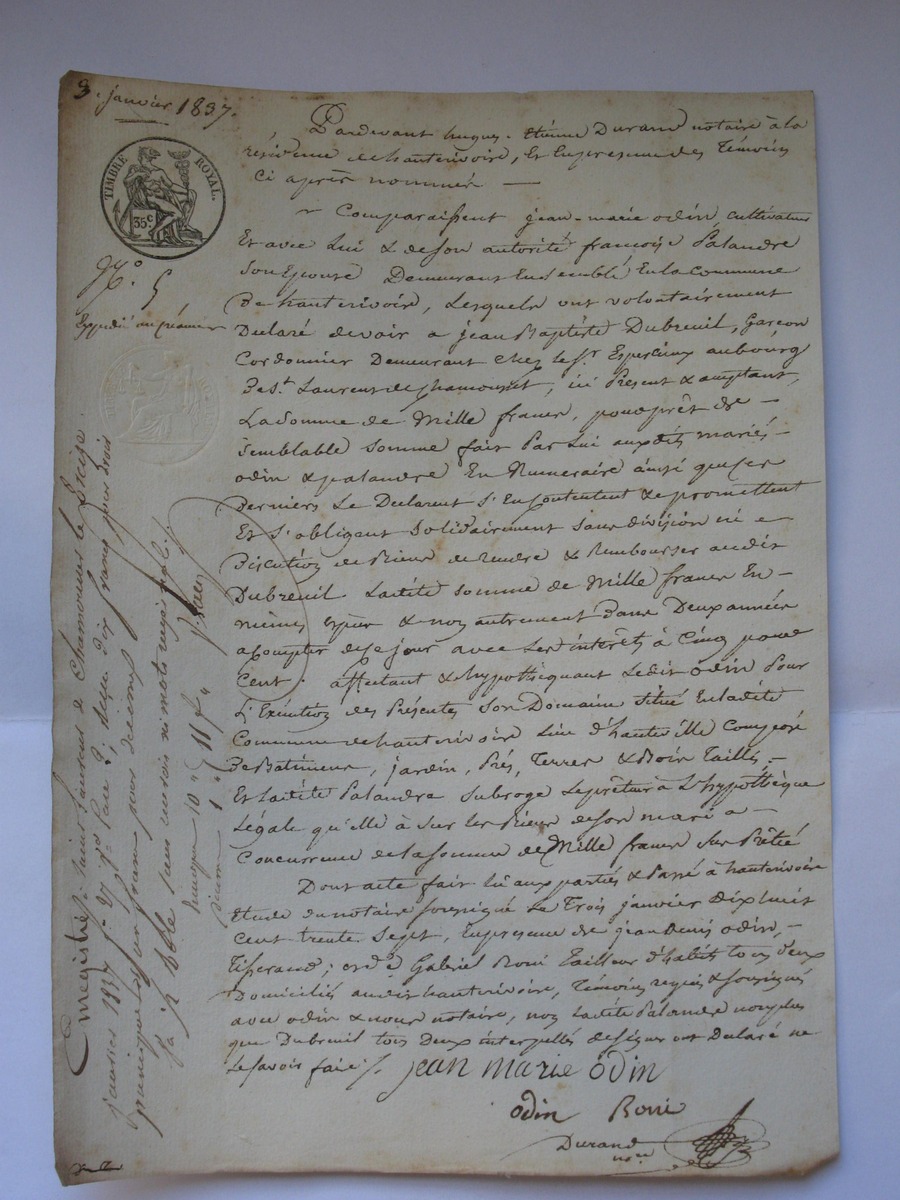 3. janvier 1837.
TIMBRE ROYAL.
35c
N.o 5
Expédié au créancier
Pardevant hugues-Etienne Durand notaire à la
résidence de hauterivoire, et En presence des Témoins
Ci après nommés —
Comparaissent jean-marie odin cultivateur
Et avec Lui & de son autorité françoise Palandre
Son Epouse Demeurant Ensemble En la commune
De hauterivoire, Lesquels ont volontairement
Declaré devoir a jean Baptiste Dubreuil, Garcon
Cordonnier Demeurant chez le Sr. au bourg
De St. Laurent de Chamousset, ici Présent & acceptant,
La Somme de Mille francs, pour prêt de —
Semblable Somme fait Par Lui auxdits mariés —
odin & palandre En Numeraire ainsi que ces
Derniers Le Declarent S'En Contentent & promettent
Et S'obligent Solidairement Sans division ni
Discution de Biens de rendre & Rembourser audit
Dubreuil Ladite Somme de Mille francs En —
mêmes Espèces & non autrement Dans Deux années
a Compter de ce jour avec Les intérêts à Cinq pour
Cent. affectant & hypothéquant Ledit odin Pour
L'Exécution des Présentes Son Domaine Situé En ladite
Commune de hauterivoire Lieu d'hauteville Composé
De Batimens, jardin, Prés, Terres & Bois Taillis, —
Et Ladite Palandre Subroge Le prêteur à L'hypothèque
Légale qu'elle à Sur les Biens de Son mari a —
Concurrence de la Somme de Mille francs Sus Prêtée
Dont acte fait Lu aux parties & Passé à hauterivoire
Etude du notaire Soussigné Le Trois janvier dix huit
Cent trente Sept, En presence de jean Denis odin, —
Tisserand; et de Gabriel Boni Tailleur d'habits tous deux
Domiciliés audit hauterivoire, Témoins requis & Soussignés
avec odin & nous notaire, non Ladite Palandre non plus
que Dubreuil tous Deux interpellés de Signer ont Declaré ne
Le Savoir faire /.
jean marie odin
odin Boni
Durand
nre
Enregistré à Saint Laurent de Chamousset le Treize
janvier 1837 f.o 27 Case 3, reçu dix francs pour droit
principal & un franc pour decime
La /. sans renvois ni mots rayés nuls.
Principe 10 "
Decime 1 "
11 f "